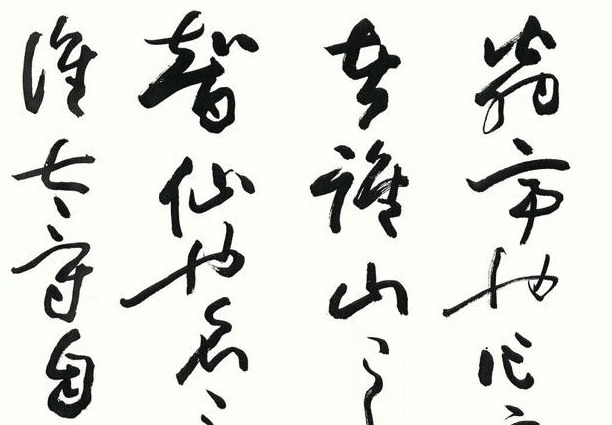 翁亭也作
者誰山之
智仙也名
誰太守自